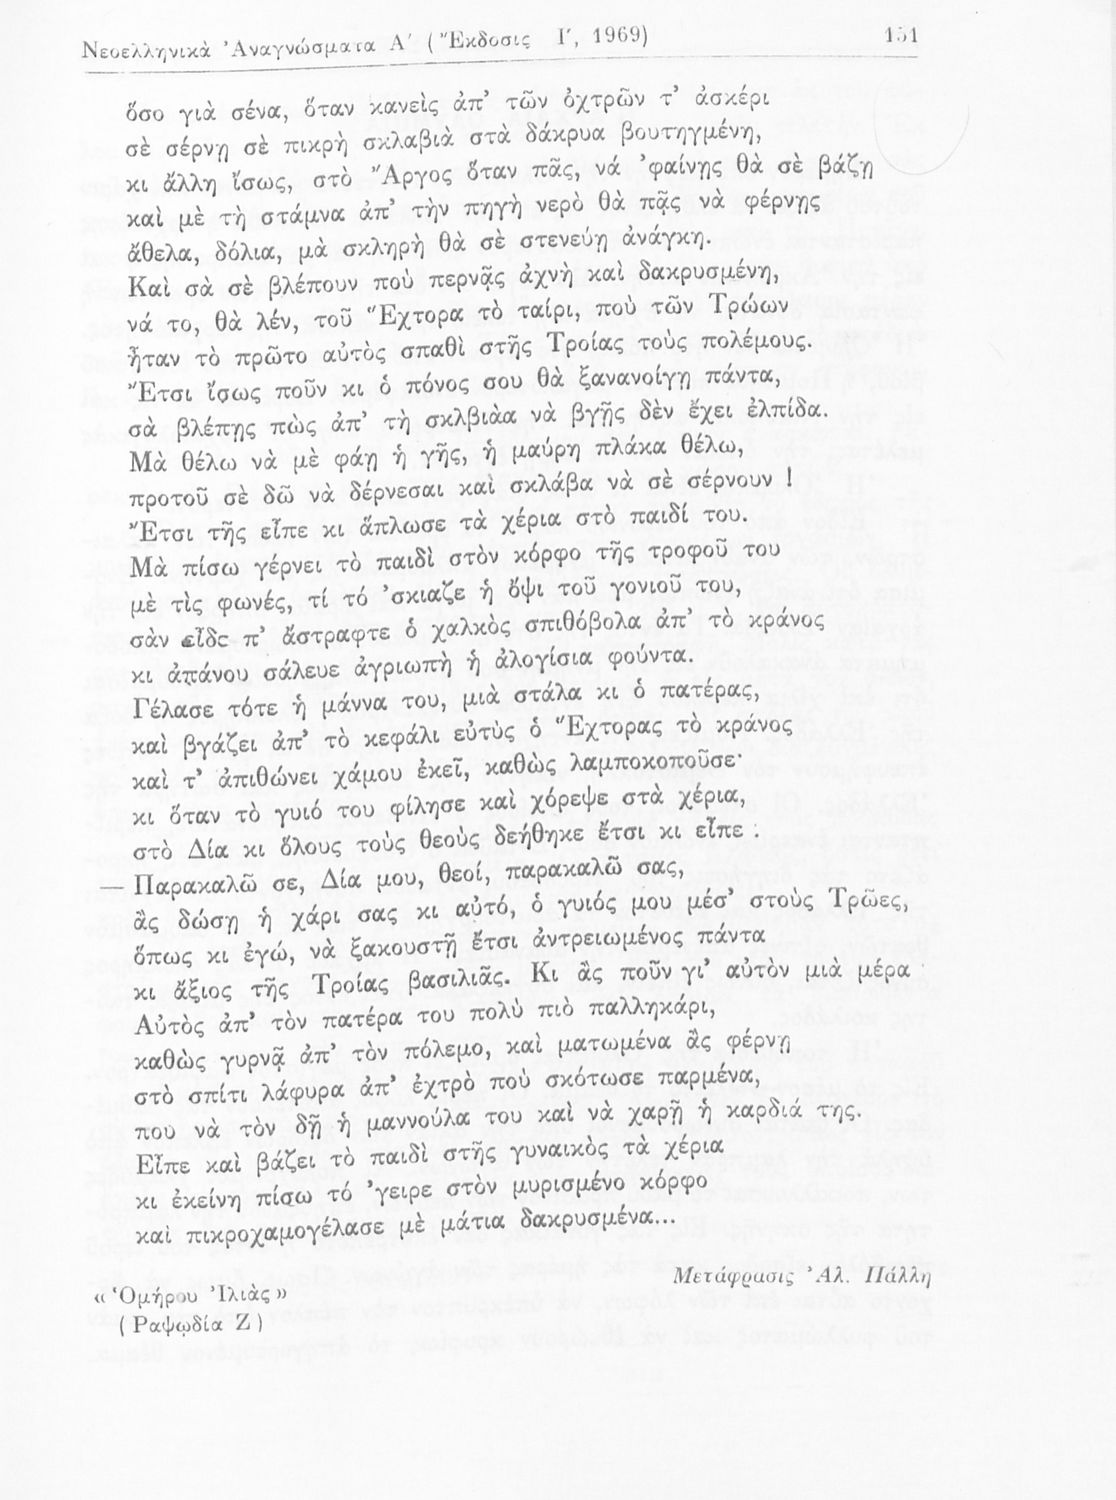 Νεοελληνικὰ Ἀναγνώσματα Α΄ (Ἔκδοσις Ι΄, 1969) 151
ὅσο γιὰ σένα, ὅταν κανεὶς ἀπ᾽ τῶν ὀχτρῶν τ᾽ ἀσκέρι
σὲ σέρνῃ σὲ πικρὴ σκλαβιὰ στὰ δάκρυα βουτηγμένη,
κι ἄλλη ἴσως, στὸ Ἄργος ὅταν πᾶς, νά ᾽φαίνῃς θὰ σὲ βάζῃ
καὶ μὲ τὴ στάμνα ἀπ᾽ τὴν πηγὴ νερὸ θὰ πᾷς νὰ φέρνῃς
ἄθελα, δόλια, μὰ σκληρὴ θὰ σὲ στενεύῃ ἀνάγκη.
Καὶ σὰ σὲ βλέπουν ποὺ περνᾷς ἀχνὴ καὶ δακρυσμένη,
νά το, θὰ λέν, τοῦ Ἕχτορα τὸ ταίρι, ποὺ τῶν Τρώων
ἦταν τὸ πρῶτο αὐτὸς σπαθὶ στῆς Τροίας τοὺς πολέμους.
Ἔτσι ἴσως ποῦν κι ὁ πόνος σου θὰ ξανανοίγῃ πάντα,
σὰ βλέπῃς πὼς ἀπ᾽ τὴ σκλβιὰα νὰ βγῇς δὲν ἔχει ἐλπίδα.
Μὰ θέλω νὰ μὲ φάῃ ἡ γῆς, ἡ μαύρη πλάκα θέλω,
προτοῦ σὲ δῶ νὰ δέρνεσαι καὶ σκλάβα νὰ σὲ σέρνουν !
Ἔτσι τῆς εἶπε κι ἅπλωσε τὰ χέρια στὸ παιδί του.
Μὰ πίσω γέρνει τὸ παιδὶ στὸν κόρφο τῆς τροφοῦ του
μὲ τὶς φωνές, τί τό ᾽σκιαζε ἡ ὄψι τοῦ γονιοῦ του,
σὰν εἶδε π᾽ ἄστραφτε ὁ χαλκὸς σπιθόβολα ἀπ᾽ τὸ κράνος
κι ἀπάνου σάλευε ἀγριωπὴ ἡ ἀλογίσια φούντα.
Γέλασε τότε ἡ μάννα του, μιὰ στάλα κι ὁ πατέρας,
καὶ βγάζει ἀπ᾽ τὸ κεφάλι εὐτὺς ὁ Ἕχτορας τὸ κράνος
καὶ τ᾽ ἀπιθώνει χάμου ἐκεῖ, καθὼς λαμποκοποῦσε·
κι ὅταν τὸ γυιό του φίλησε καὶ χόρεψε στὰ χέρια,
στὸ Δία κι ὅλους τοὺς θεοὺς δεήθηκε ἔτσι κι εἶπε :
— Παρακαλῶ σε, Δία μου, θεοί, παρακαλῶ σας,
ἂς δώσῃ ἡ χάρι σας κι αὐτό, ὁ γυιός μου μέσ᾽ στοὺς Τρῶες,
ὅπως κι ἐγώ, νὰ ξακουστῇ ἔτσι ἀντρειωμένος πάντα
κι ἄξιος τῆς Τροίας βασιλιᾶς. Κι ἂς ποῦν γι᾽ αὐτὸν μιὰ μέρα :
Αὐτὸς ἀπ᾽ τὸν πατέρα του πολὺ πιὸ παλληκάρι,
καθὼς γυρνᾷ ἀπ᾽ τὸν πόλεμο, καὶ ματωμένα ἂς φέρνῃ
στὸ σπίτι λάφυρα ἀπ᾽ ἐχτρὸ ποὺ σκότωσε παρμένα,
ποὺ νὰ τὸν δῇ ἡ μαννούλα του καὶ νὰ χαρῇ ἡ καρδιά της.
Εἶπε καὶ βάζει τὸ παιδὶ στῆς γυναικὸς τὰ χέρια
κι ἐκείνη πίσω τό ᾽γειρε στὸν μυρισμένο κόρφο
καὶ πικροχαμογέλασε μὲ μάτια δακρυσμένα...
Μετάφρασις Ἀλ. Πάλλη
«Ὁμήρου Ἰλιὰς»
(Ραψῳδία Ζ)